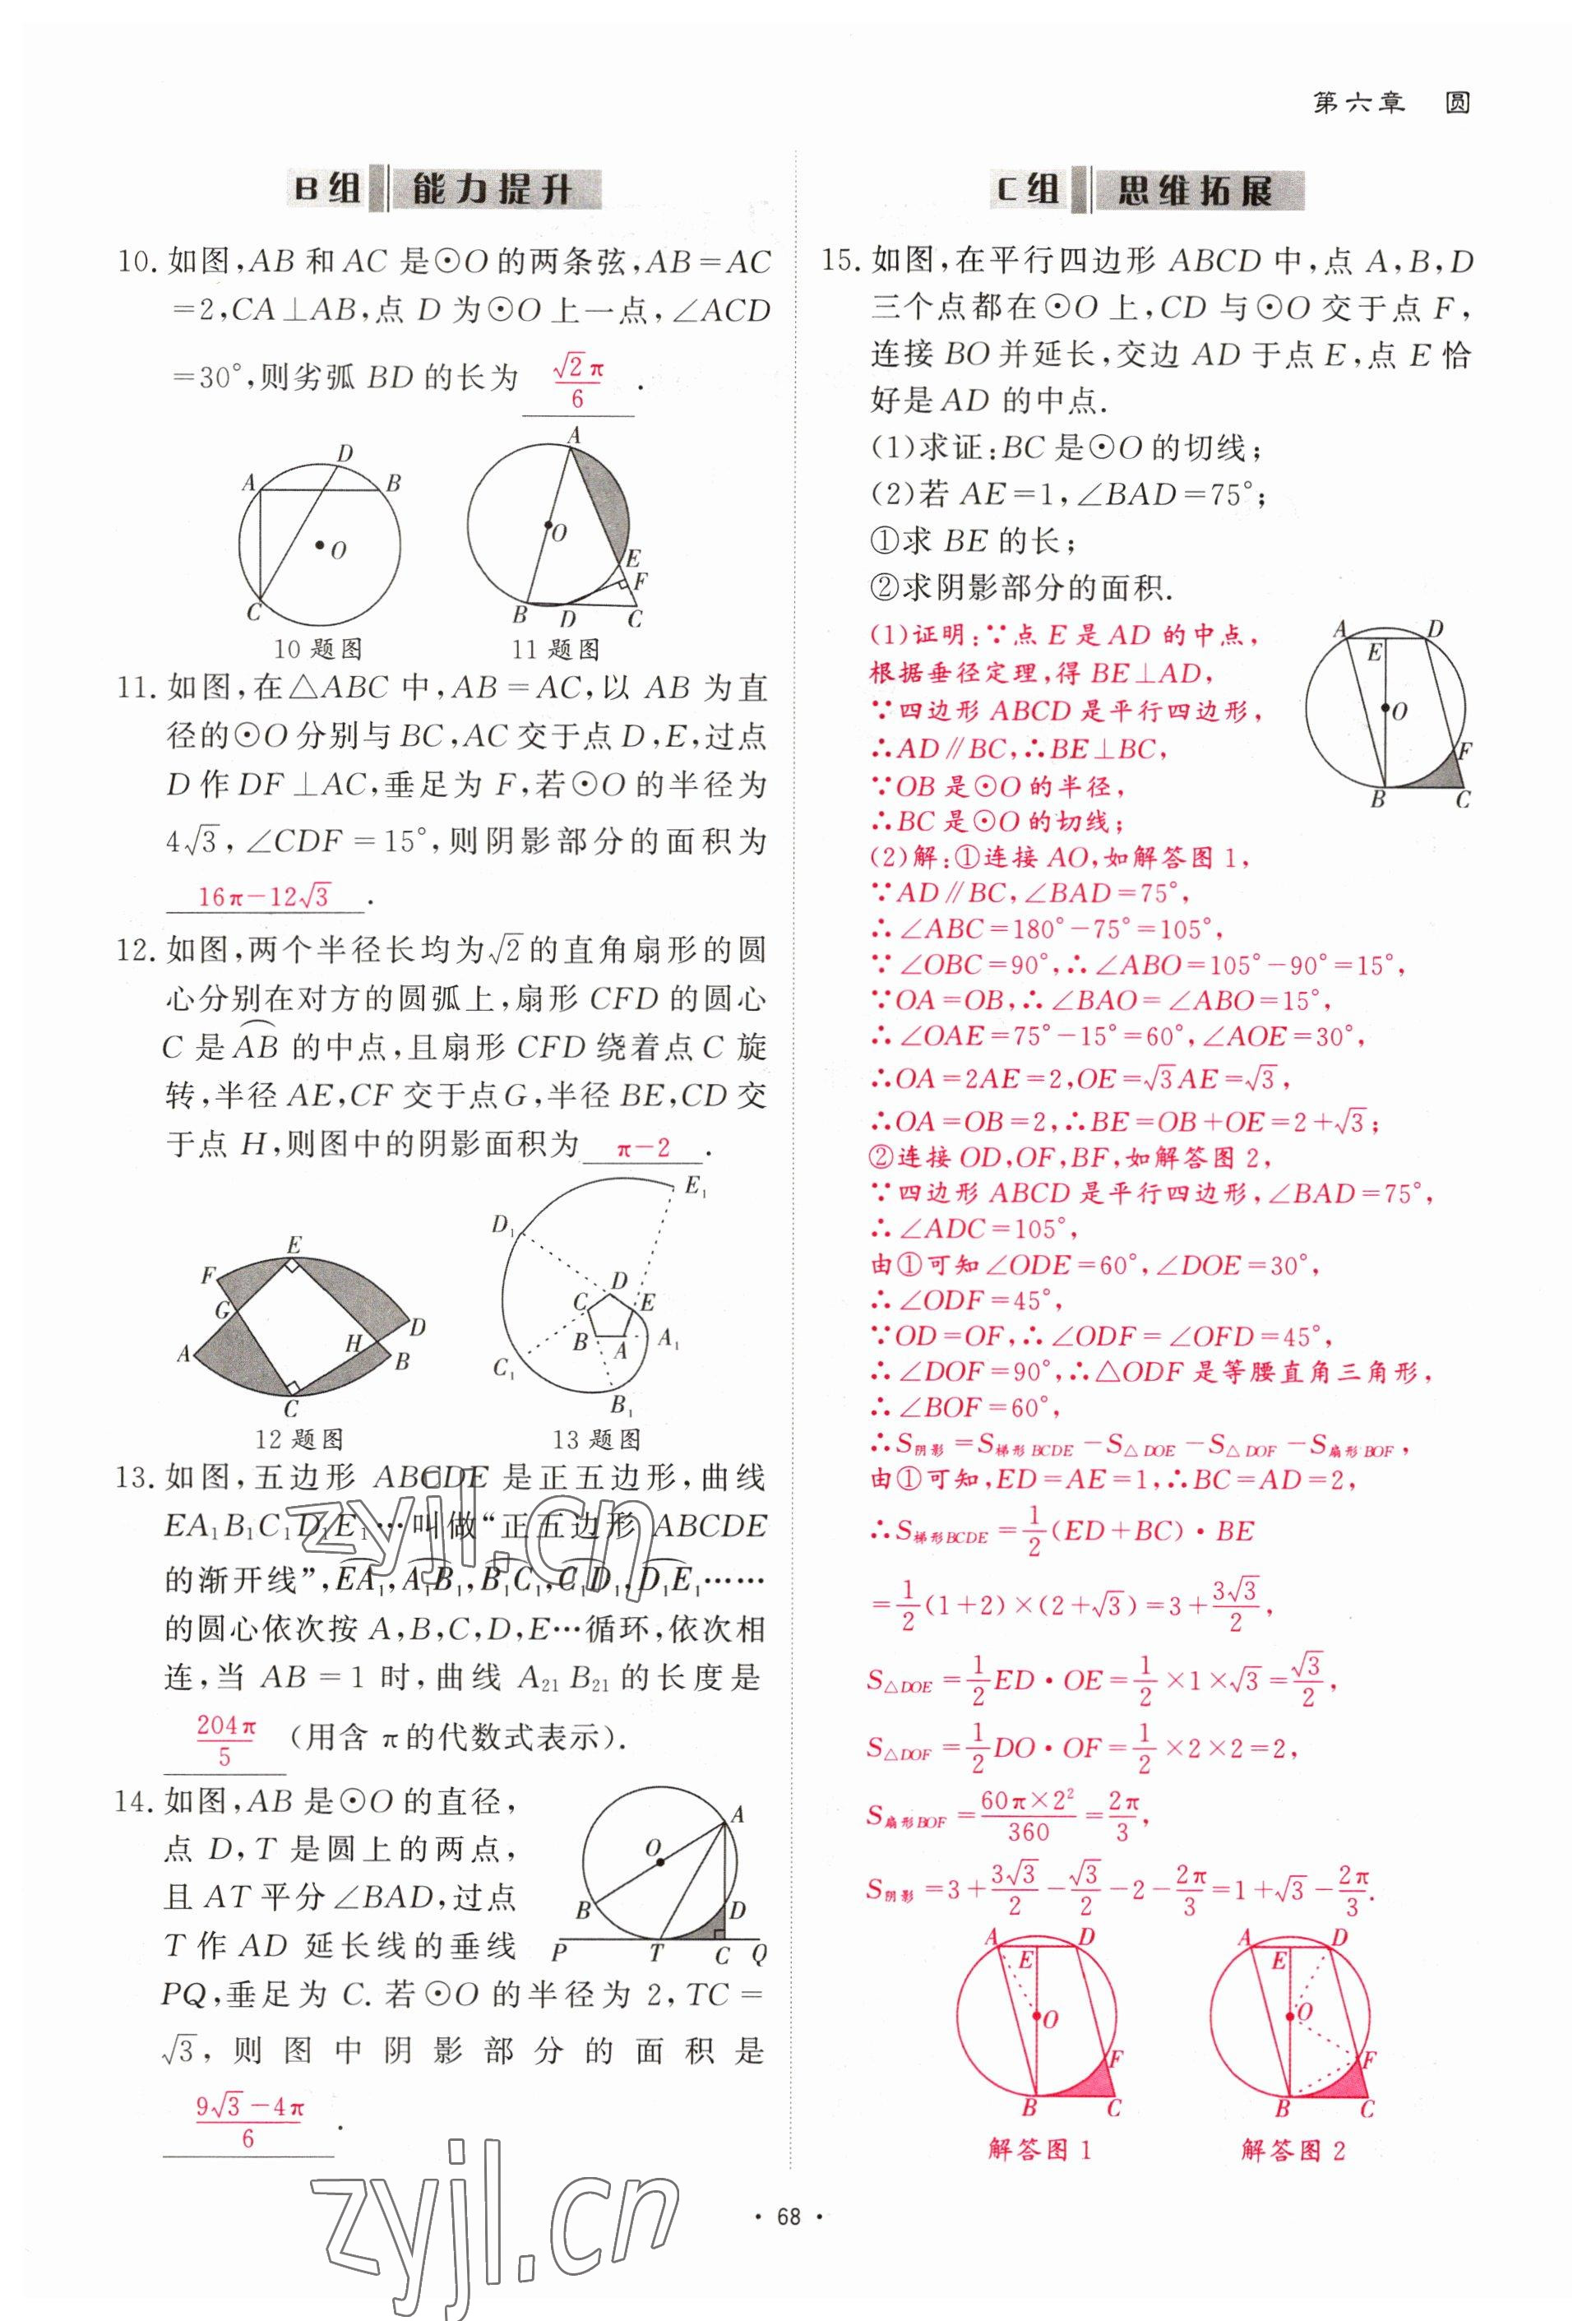 第六章 圆
B组 能力提升
10. 如图,AB 和 AC 是⊙O 的两条弦,AB=AC
=2,CA⊥AB,点 D 为⊙O 上一点,∠ACD
=30°,则劣弧 BD 的长为 √2π/6 .
A D B O C
10 题图
A O E F B D C
11 题图
11. 如图,在△ABC 中,AB=AC,以 AB 为直
径的⊙O 分别与 BC,AC 交于点 D,E,过点
D 作 DF⊥AC,垂足为 F,若⊙O 的半径为
4√3,∠CDF=15°,则阴影部分的面积为
16π-12√3 .
12. 如图,两个半径长均为√2的直角扇形的圆
心分别在对方的圆弧上,扇形 CFD 的圆心
C 是 A͡B 的中点,且扇形 CFD 绕着点 C 旋
转,半径 AE,CF 交于点G,半径 BE,CD 交
于点 H,则图中的阴影面积为 π-2 .
E F G A D H B C
12 题图
E₁ D₁ D C E B A A₁ C₁ B₁
13 题图
13. 如图,五边形 ABCDE 是正五边形,曲线
EA₁B₁C₁D₁E₁…叫做“正五边形 ABCDE
的渐开线”,E͡A₁,A₁͡B₁,B₁͡C₁,C₁͡D₁,D₁͡E₁……
的圆心依次按 A,B,C,D,E…循环,依次相
连,当 AB=1 时,曲线 A₂₁B₂₁的长度是
204π/5 (用含 π的代数式表示).
14. 如图,AB 是⊙O 的直径,
点 D,T 是圆上的两点,
且 AT 平分∠BAD,过点
T 作 AD 延长线的垂线
PQ,垂足为 C. 若⊙O 的半径为 2,TC=
√3,则图中阴影部分的面积是
(9√3-4π)/6 .
A O B D P T C Q
C组 思维拓展
15. 如图,在平行四边形 ABCD 中,点 A,B,D
三个点都在⊙O 上,CD 与⊙O 交于点 F,
连接 BO并延长,交边 AD 于点 E,点 E 恰
好是 AD 的中点.
(1)求证:BC 是⊙O 的切线;
(2)若 AE=1,∠BAD=75°;
①求 BE 的长;
②求阴影部分的面积.
A D E O F B C
(1)证明:∵点 E 是 AD 的中点,
根据垂径定理,得 BE⊥AD,
∵四边形 ABCD 是平行四边形,
∴AD∥BC,∴BE⊥BC,
∵OB 是⊙O 的半径,
∴BC 是⊙O 的切线;
(2)解:①连接 AO,如解答图 1,
∵AD∥BC,∠BAD=75°,
∴∠ABC=180°-75°=105°,
∵∠OBC=90°,∴∠ABO=105°-90°=15°,
∵OA=OB,∴∠BAO=∠ABO=15°,
∴∠OAE=75°-15°=60°,∠AOE=30°,
∴OA=2AE=2,OE=√3AE=√3,
∴OA=OB=2,∴BE=OB+OE=2+√3;
②连接 OD,OF,BF,如解答图 2,
∵四边形 ABCD 是平行四边形,∠BAD=75°,
∴∠ADC=105°,
由①可知∠ODE=60°,∠DOE=30°,
∴∠ODF=45°,
∵OD=OF,∴∠ODF=∠OFD=45°,
∴∠DOF=90°,∴△ODF 是等腰直角三角形,
∴∠BOF=60°,
∴S阴影=S梯形BCDE-S△DOE-S△DOF-S扇形BOF,
由①可知,ED=AE=1,∴BC=AD=2,
∴S梯形BCDE=1/2(ED+BC)·BE
=1/2(1+2)×(2+√3)=3+3√3/2,
S△DOE=1/2ED·OE=1/2×1×√3=√3/2,
S△DOF=1/2DO·OF=1/2×2×2=2,
S扇形BOF=60π×2²/360=2π/3,
S阴影=3+3√3/2-√3/2-2-2π/3=1+√3-2π/3.
A D E O F B C
解答图 1
A D E O F B C
解答图 2
· 68 ·
zyjl.cn
zyjl.cn